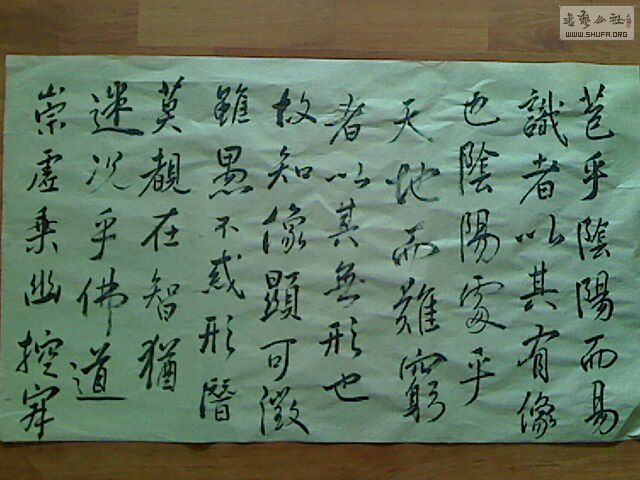 苞乎陰陽而易
識者以其有像
也陰陽處乎
天地而難窮
者以其無形也
故知像顯可徵
雖愚不惑形潛
莫覩在智猶
迷況乎佛道
崇虛乘幽控寂
書藝公社
WWW.SHUFA.ORG